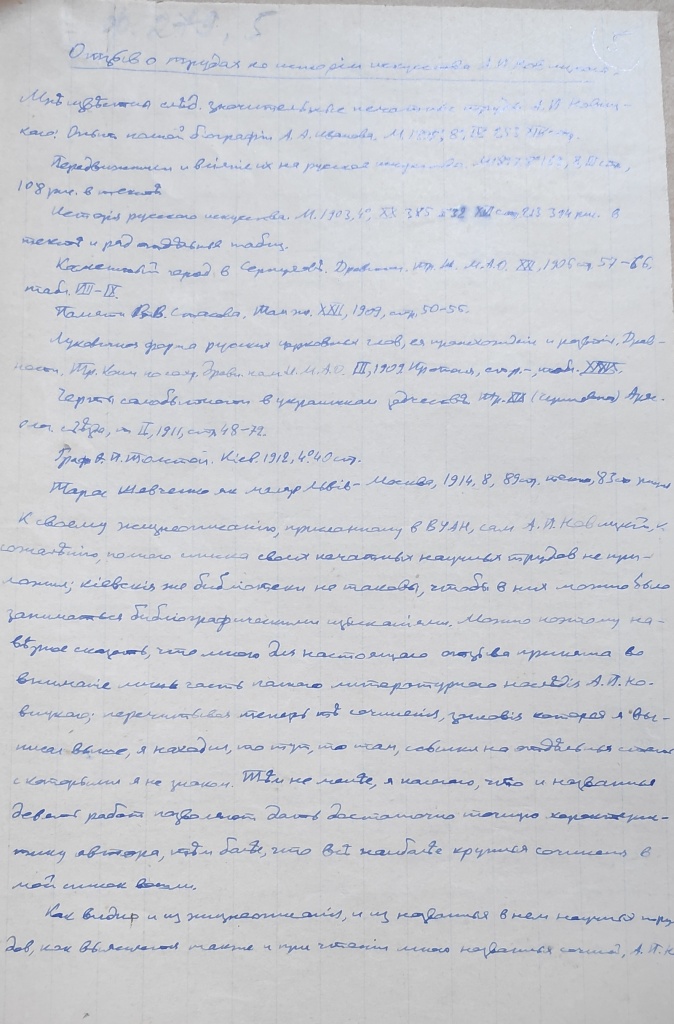 Отзыв о трудах по исторіи искусства А. П. Новицкаго.
Мнѣ извѣстны слѣд. значительные печатные труды А. П. Новиц-
каго: Опытъ полной біографіи А. А. Иванова. М. 1895, 8°, IV
Передвижники и вліяніе ихъ на русское искусство. М. 1897, 8°
108 рис. в текстѣ.
Исторія русского искусства. М. 1903, 4°, XX 385 в
текстѣ и ряд отдѣльных таблиц.
город в Серпуховѣ. Древности. Тр. И. М. А. О. XXI, 1906 стр. 57–66,
табл. VIII–IX.
Памяти В. В. Стасова. Там же. XXII, 1909, стр. 50–55.
Луковичная форма русских церковных глав, ея происхожденіе и развитіе. Древ-
ности. Тр. Ком. по сохр. древн. пам. И. М. А. О. III, 1909 стр.–, табл.
Черты самобытности в украинском зодчествѣ. Тр. XIV (Черниговск.) Архе-
олог. съѣзда, т. II, 1911, стр. 48–72.
Граф Ѳ. П. Толстой. Кіев. 1912, 4° 40 стр.
Тарас Шевченко як маляр. Львів – Москва, 1914, 8, 89 стр. текста, 83
К своему жизнеописанію, присланному в ВУАН, сам А. П. Новицкій, к
сожалѣнію, полного списка своих печатных научных трудов не при-
ложил; кіевскія же библіотеки не таковы, чтобы в них можно было
заниматься библіографическими изысканіями. Можно поэтому на-
вѣрное сказать, что мною для настоящаго отзыва принята во
вниманіе лишь часть полнаго литературнаго наслѣдія А. П. Но-
вицкаго; перечитывая теперь тѣ сочиненія, заглавія которых я вы-
писал выше, я находил, то тут, то там, ссылки на отдѣльныя статьи
с которыми я не знаком. Тѣм не менѣе, я полагаю, что и названныя
девять работ позволяют дать достаточно точную характерис-
тику автора, тѣм болѣе, что всѣ наиболѣе крупныя сочиненія в
мой список вошли.
Как видно и из жизнеописанія, и из названных в нем научных тру-
дов, как выясняется также и при чтеніи мною названных сочиненій, А. П. Н